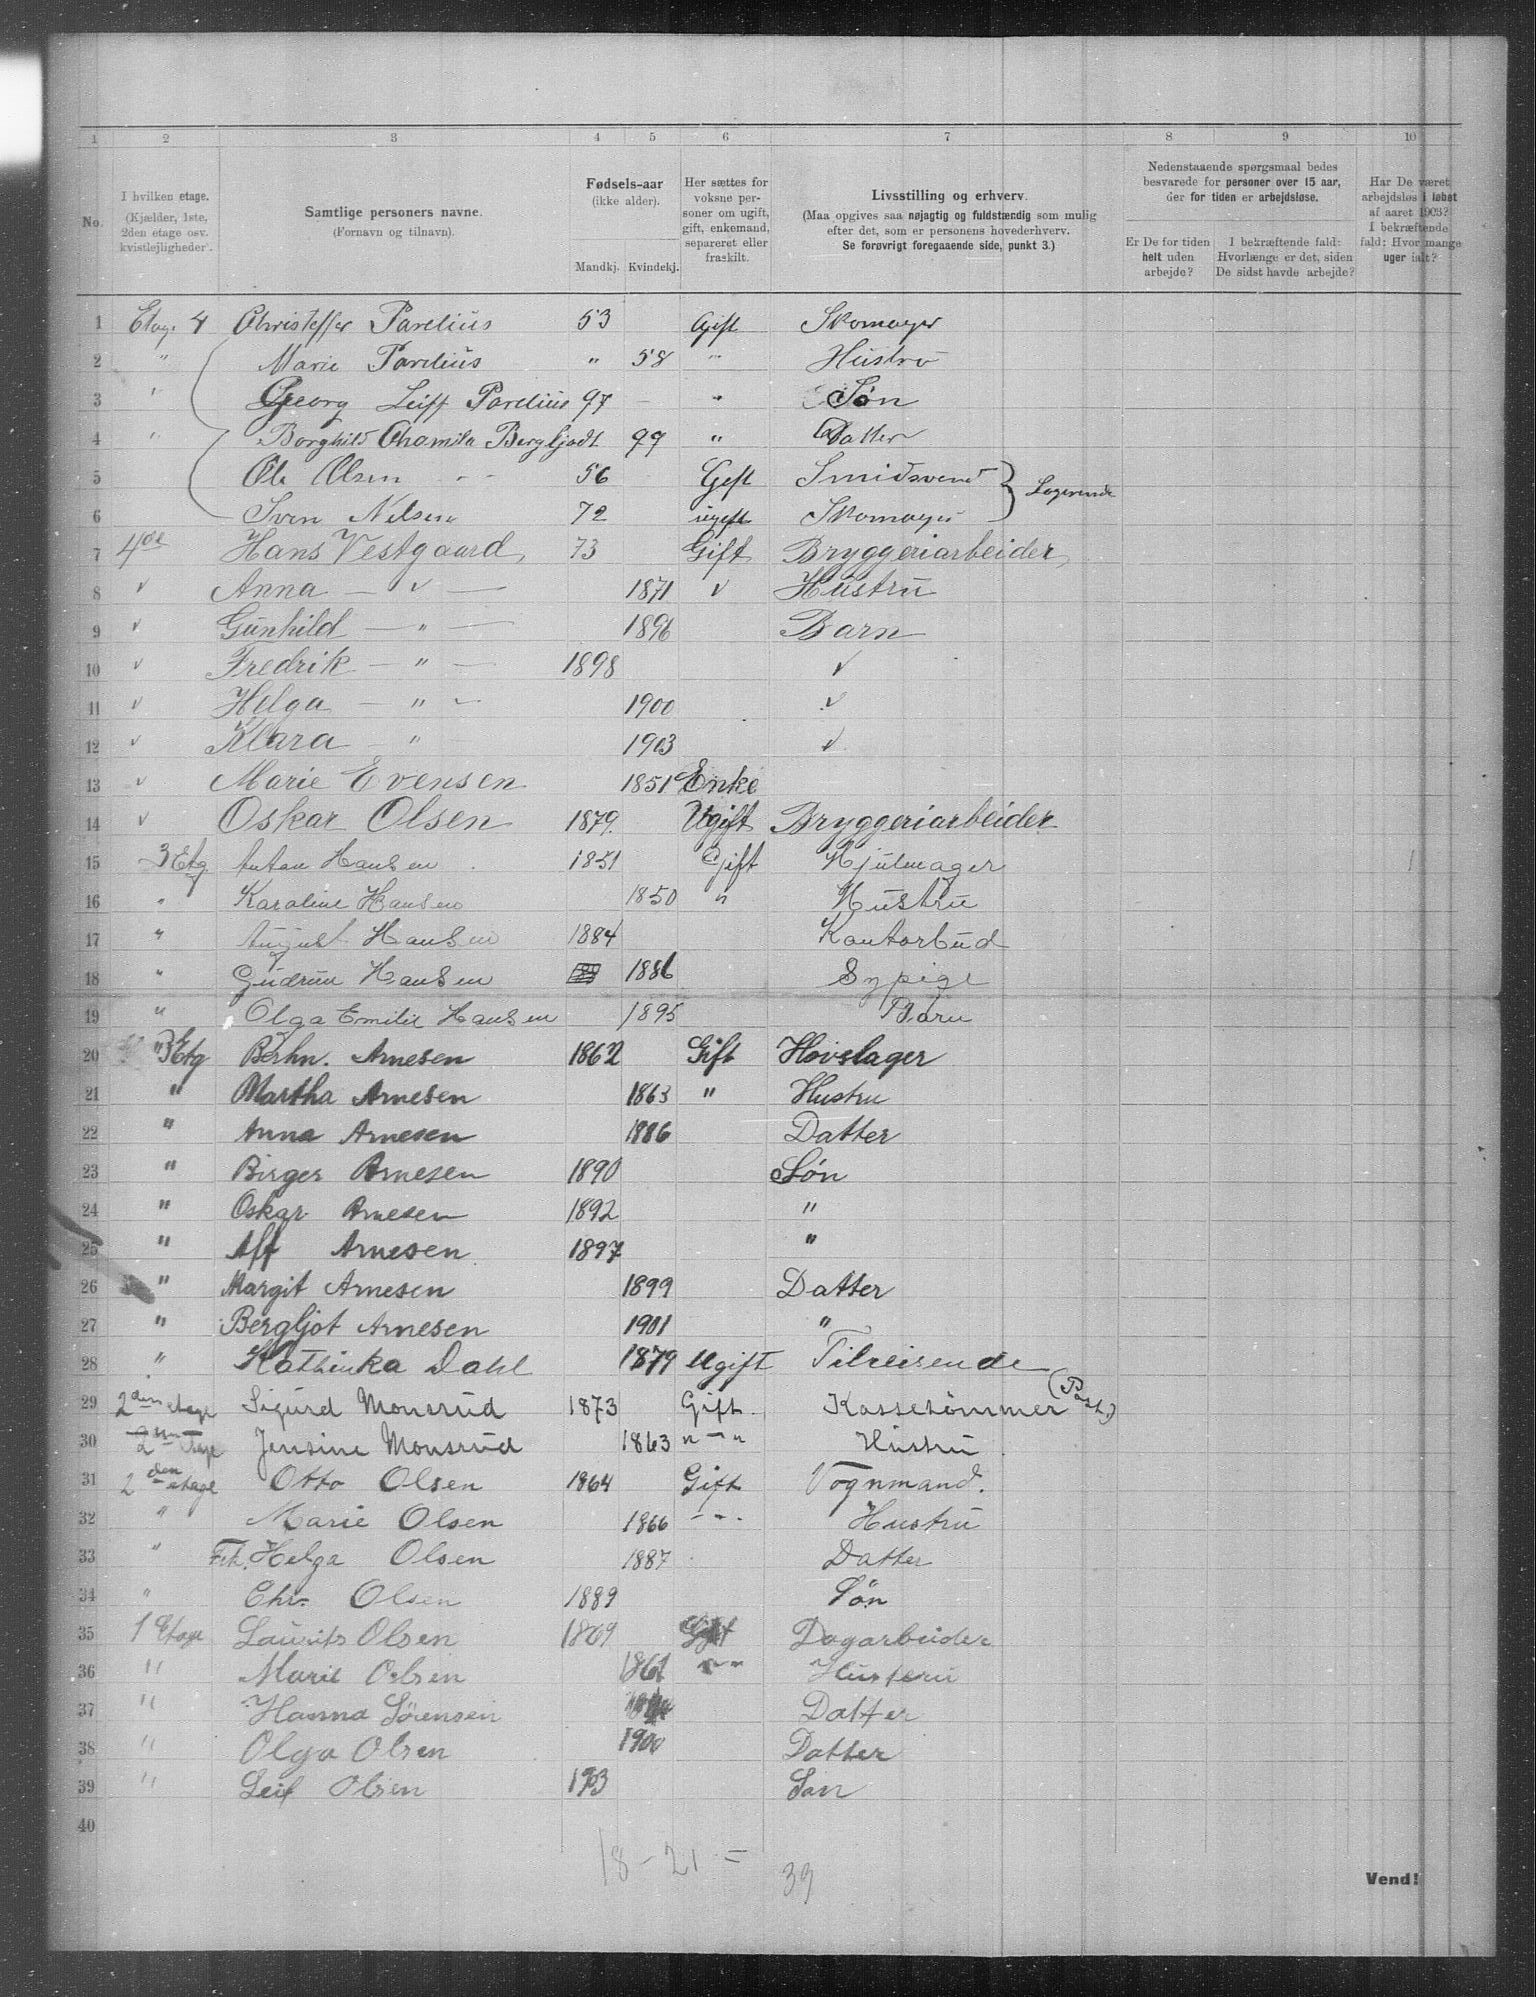 1 2 3 4 5 6 7 8 9 10
No.
I hvilken etage. (Kjælder, 1ste, 2den etage osv. kvistleiligheder.
Samtlige personers navne.
(Fornavn og tilnavn).
Fødsels-aar
(ikke alder).
Mandkj. Kvindekj.
Her sættes for voksne personer om ugift, gift, enkemand, separeret eller fraskilt.
Livsstilling og erhverv.
(Maa opgives saa nøjagtig og fuldstændig som mulig
efter det, som er personens hovederhverv.
Se forøvrigt foregaaende side, punkt 3.)
Nedenstaaende spørgsmaal bedes
besvarede for personer over 15 aar,
der for tiden er arbejdsløse.
Er De for tiden helt uden arbejde?
I bekræftende fald: Hvorlænge er det, siden De sidst havde arbejde?
Har De været arbejdsløs i løbet af aaret 1903? I bekræftende fald: Hvor mange uger ialt?
1 Etag. 4 Christoffer Parelius 53 Gift Skomager
2 " Marie Parelius " 58 " Hustro
3 " Georg Leiff Parelius 97 - " Søn
4 " Borghild Chamila Bergljodt 99 " Datter
5 Ole Olsen - - 56 Gift Smidsvend } Logerende
6 Sven Nelsen 72 ugift Skomager
7 4de Hans Vestgaard, 73 Gift Bryggeriarbeider,
8 " Anna — " — 1871 " Hustru
9 " Gunhild — " — 1896 Barn
10 " Fredrik — " — 1898 "
11 " Helga — " — 1900 "
12 " Klara — " 1903 "
13 " Marie Evensen 1851 Enke
14 " Oskar Olsen 1879. Ugift Bryggeriarbeider
15 3 Etg Anton Hansen 1851 Gift Hjulmager 1
16 " Karoline Hansen 1850 " Hustru
17 " August Hansen 1884 Kontorbud
18 " Gudrun Hansen 1886 Sypige
19 " Olga Emilie Hansen 1895 Barn
20 " 3 Etg Bernhn. Arnesen 1862 Gift Hovslager
21 " Martha Arnesen 1863 " Hustru
22 " Anna Arnesen 1886 Datter
23 " Birger Arnesen 1890 Søn
24 " Oskar Arnesen 1892 "
25 " Alf Arnesen 1897 "
26 " Margit Arnesen 1899 Datter
27 " Bergljot Arnesen 1901 "
28 " Kathinka Dahl 1879 Ugift Tilreisende
29 2den etage Sigurd Monsrud 1873 Gift. Kassetømmer (Post.)
30 2den Etage Jensine Monsrud 1863 " - " Hustru
31 2den etage Otto Olsen 1864 Gift Vognmand.
32 " Marie Olsen 1866 - " - Hustru
33 " Frk. Helga Olsen 1887 Datter
34 " Chr. Olsen 1889 Søn
35 1 Etage Laurits Olsen 1869 Gift Dagarbeider
36 " Marie Olsen 1861 " Husteru
37 " Hanna Sørensen Datter
38 " Olga Olsen 1900 Datter
39 " Leif Olsen 1903 Søn
40
18 - 21 = 39
Vend!